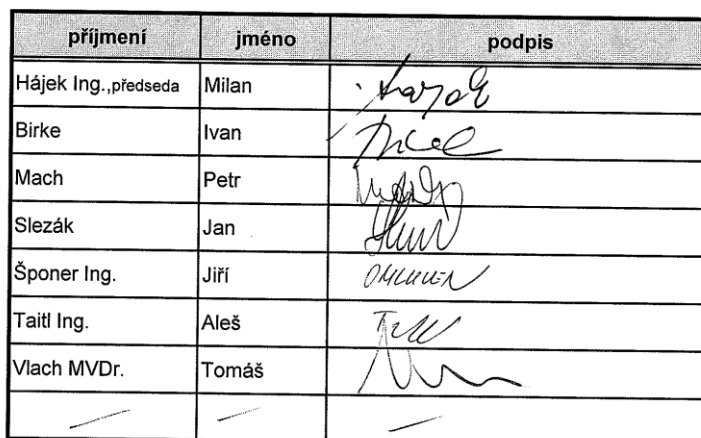 příjmení jméno podpis
Hájek Ing.,předseda Milan
Birke Ivan
Mach Petr
Slezák Jan
Šponer Ing. Jiří OMLUVEN
Taitl Ing. Aleš
Vlach MVDr. Tomáš